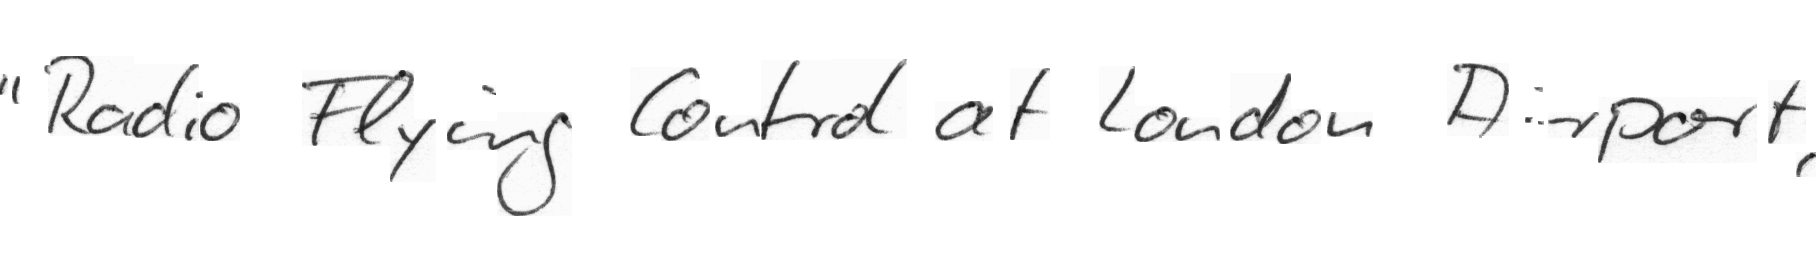 "Radio Flying Control at London Airport,